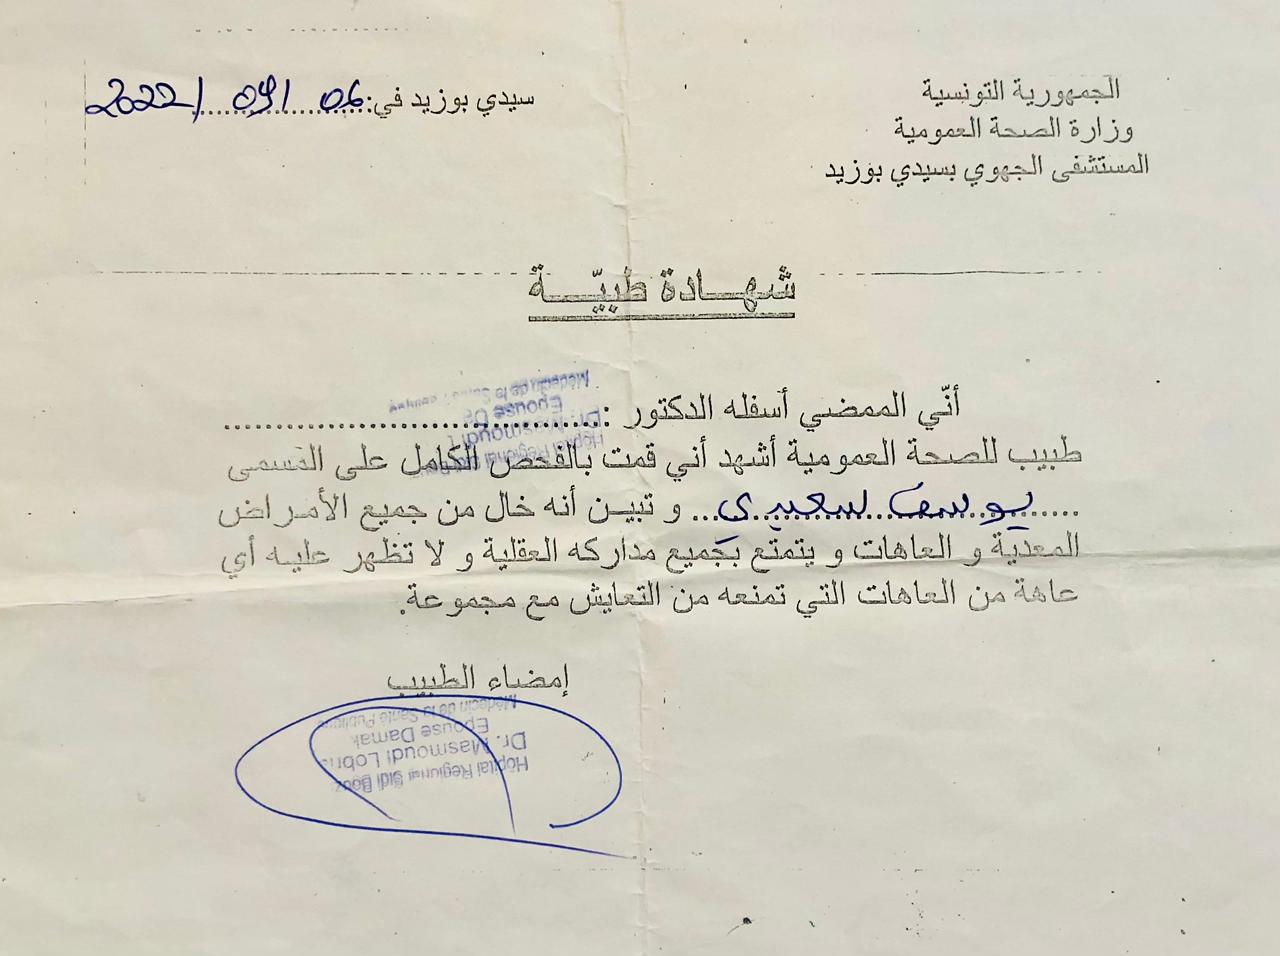 الجمهورية التونسية
وزارة الصحة العمومية
المستشفى الجهوي بسيدي بوزيد
سيدي بوزيد في:06/09/2022
شهادة طبيّة
أنّي الممضي أسفله الدكتور :
Hôpital Regional
Dr. Masmoudi
Epouse
Médecin de la
طبيب للصحة العمومية أشهد أني قمت بالفحص الكامل على المسمى
يوسف سعيدي و تبين أنه خال من جميع الأمراض
المعدية و العاهات و يتمتع بجميع مداركه العقلية و لا تظهر عليه أي
عاهة من العاهات التي تمنعه من التعايش مع مجموعة.
إمضاء الطبيب
Hôpital Regional Sidi
Dr. Masmoudi
Epouse Damak
Médecin de la Santé Publique